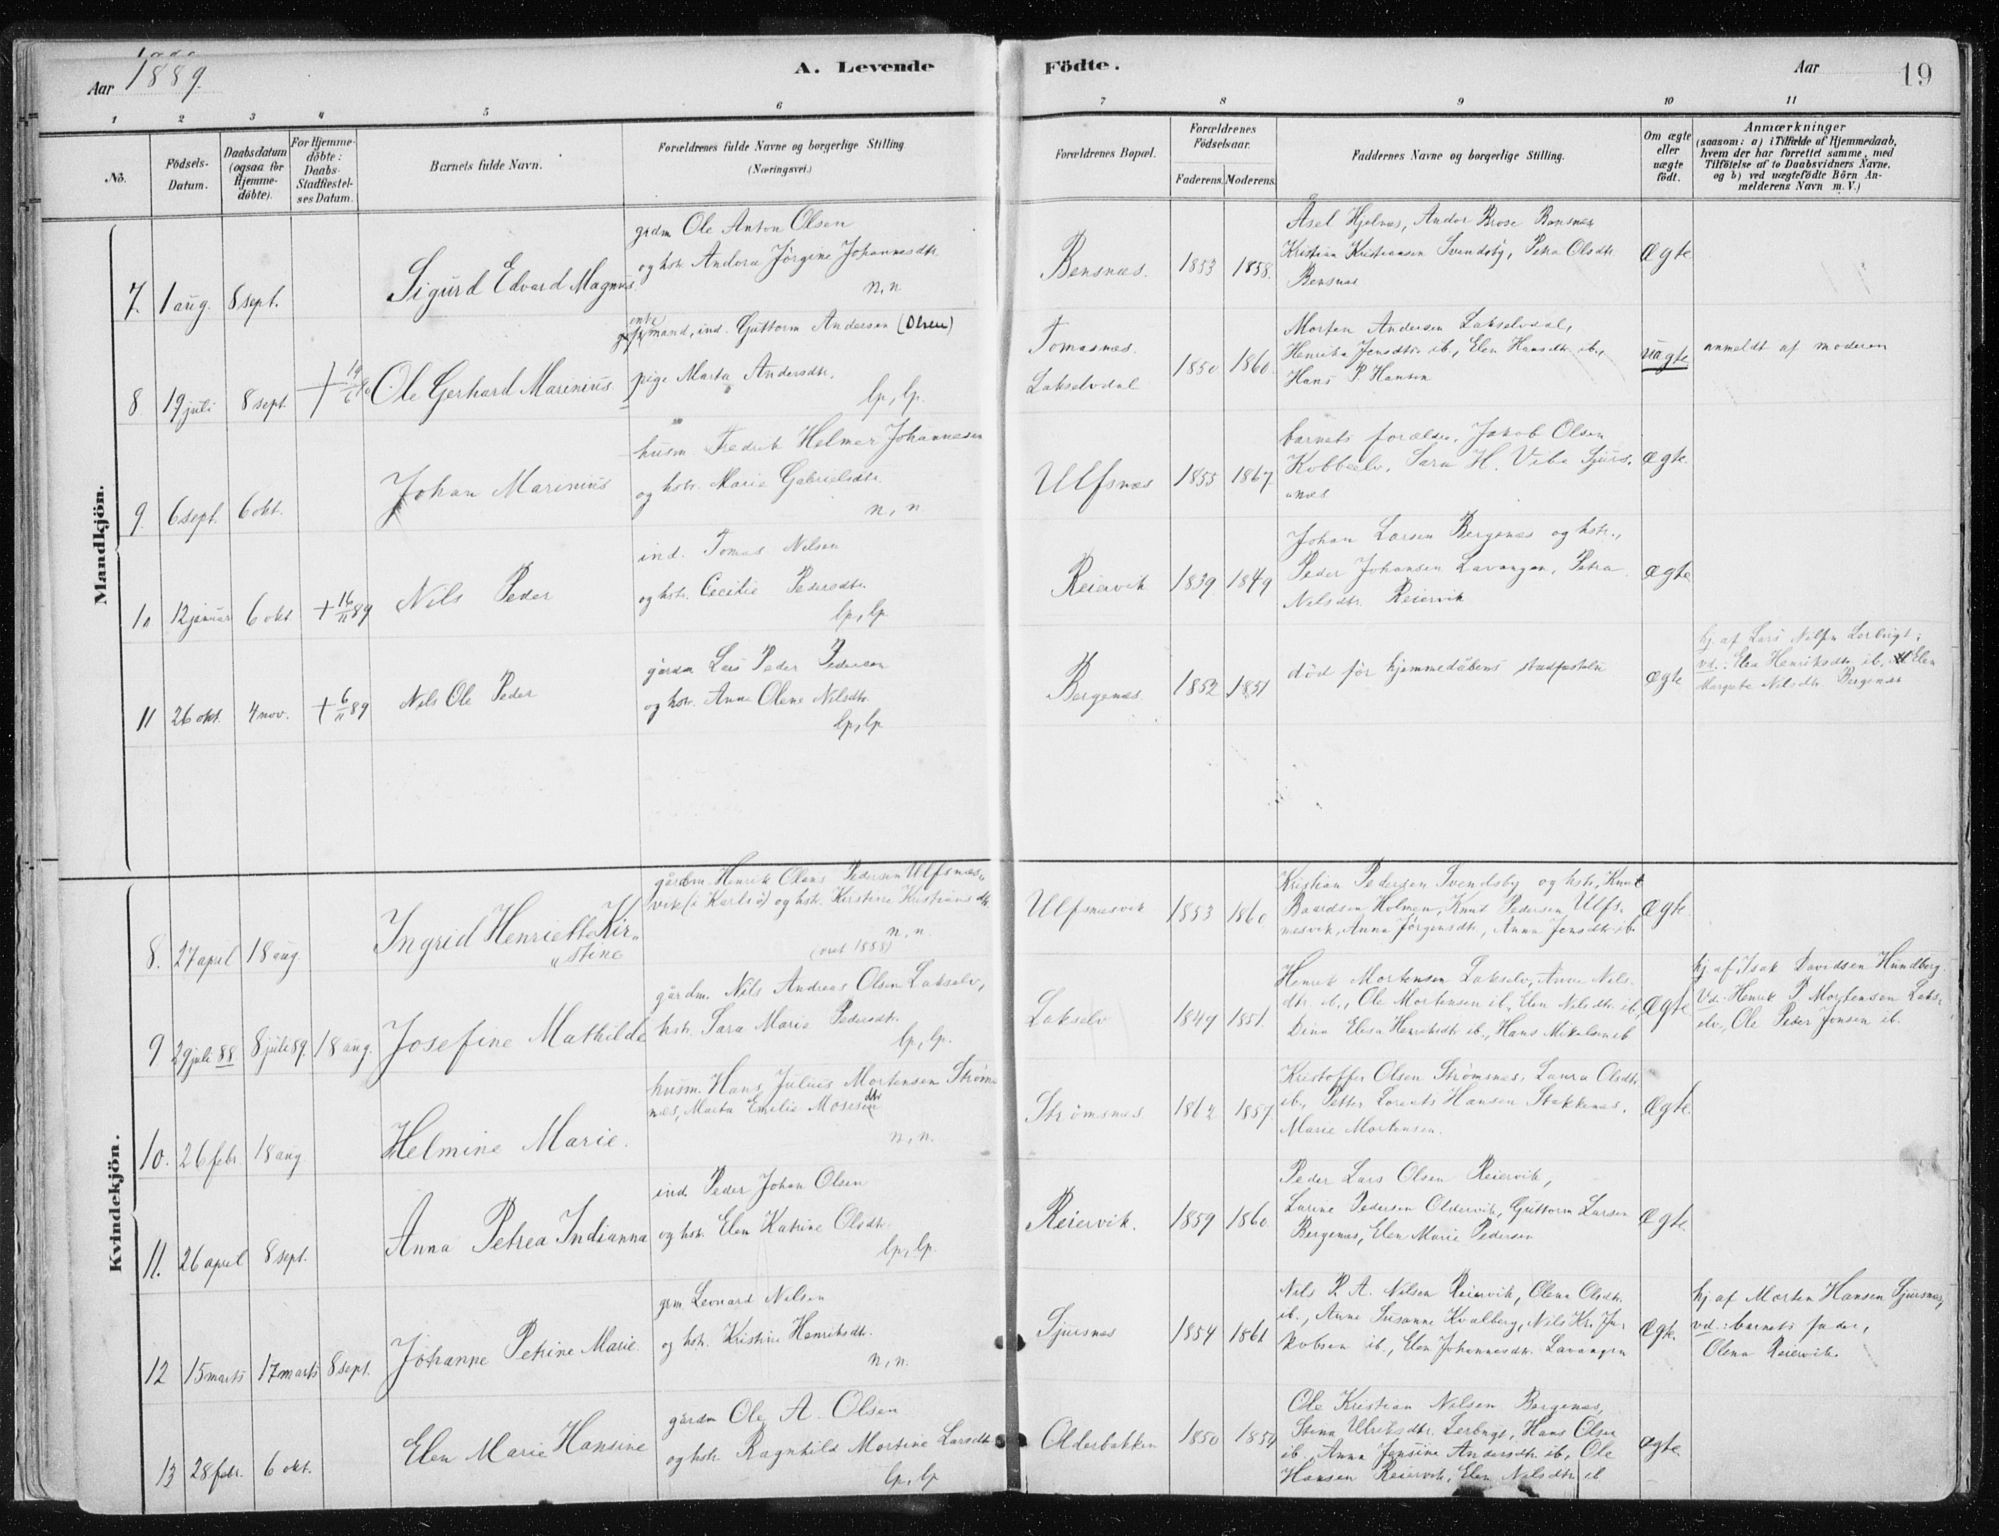 Aar 1889.
A. Levende
Födte.
Aar
19
1 2 3 4 5 6 7 8 9 10 11
No.
Födsels-Datum.
Daabsdatum (ogsaa for Hjemme-döbte).
For Hjemme-döbte: Daabs-Stadfæstel-ses Datum.
Barnets fulde Navn.
Forældrenes fulde Navne og borgerlige Stilling (Næringsvei.)
Forældrenes Bopæl.
Forældrenes Födselsaar.
Faderens. Moderens.
Faddernes Navne og borgerlige Stilling.
Om ægte eller uægte födt.
Anmærkninger
(saasom: a) i Tilfælde af Hjemmedaab, hvem der har forrettet samme, med Tilföielse af to Daabsvidners Navne, og b) ved uægtefödte Börn Anmelderens Navn m. V.)
Mandkjön.
7. 1 aug. 8 sept. Sigurd Edvard Magnus.
grdm Ole Anton Olsen
og hstr. Andora Jörgine Johannesdtr.
n, n
Bensnæs. 1853 1858.
Asel Hjelnes, Andor Brose Bensnæs
Kristian Kristiansen Svendsby, Petra Olsdtr
Bensnæs
ægte
8. 19 juli 8 sept Ole Gerhard Marinius.
enkemand, ind. Guttorm Andersen (Olsen)
pige Marta Andersdtr.
lp, lp.
Tomasnæs.
Lakselvdal 1850 1860.
Morten Andersen Lakselvdal,
Henrika Jensdtr. ib., Elen Hansdtr. ib.,
Hans P. Hansen
uægte
anmeldt af moderen
9. 6 sept. 6 okt. Johan Marinius
husm Fredrik Helmer Johannesen
og hstr. Marie Gabrielsdtr.
n, n
Ulfsnæs 1855 1867.
barnets forældre, Jakob Olsen
Kobbeelv, Sara H. Vibe Sjurs-
næs
ægte.
10 12 januar 6 okt + 16/11 89 Nils Peder
ind. Tomas Nilsen
og hstr. Cecilie Pedersdtr.
lp, lp
Reiervik 1839 1849
Johan Larsen Bergenæs og hstr.,
Peder Johansen Lavangen, Petra
Nilsdtr. Reiervik
ægte
11 26 okt. 4 nov. + 6/11 89 Nils Ole Peder
gårdm Lars Peder Pedersen
og hstr. Anne Olena Nilsdtr.
lp, lp
Bergenæs 1852 1851
död før hjemmedåbens stadfæstelse
ægte
hj. af Lars Nilsen Lerbugt;
vd.: Elen Henriksdtr. ib., Elen
Margrete Nilsdtr. Bergenæs
Kvindekjön.
8. 27 april 18 aug. Ingrid Henriette Kir-
stine
gårdm. Henrik Olaus Pedersen Ulfsnæs-
vik (i Karlsö) og hstr. Kirstine Kristiansdtr.
n, n.
Ulfsnæsvik 1853 1860
Kristian Pedersen Svendsby og hstr, Knut
Baardsen Holmen, Knut Pedersen Ulfs-
næsvik, Anna Jörgensdtr., Anna Jensdtr. ib.
ægte
9 29 juli 88 8 juli 89. 18 aug. Josefine Mathilde
gårdm. Nils Andreas Olsen Lakselv,
hstr. Sara Marie Pedersdtr.
lp, lp.
Lakselv 1849 1851.
Henrik Mortensen Lakselv, Anne Nils-
dtr. ib., Ole Mortensen ib, Elen Nilsdtr. ib
Dina Elisa Henriksdtr ib., Hans Mikalsen ib
ægte
hj. af Isak Davidsen Hundberg.
Vd. Henrik P. Mortensen Laks-
elv, Ole Peder Jensen ib.
10. 26 febr. 18 aug Helmine Marie.
husm. Hans Julius Mortensen Strøms-
næs, Marta Emilie Mosesdtr
n, n.
Strömsnæs 1862 1857
Kristoffer Olsen Strömsnæs, Laura Olsdtr.
ib., Petter Lorents Hansen Stakkenæs,
Marie Mortensen.
ægte.
11. 26 april 8 sept. Anna Petrea Indianna
ind. Peder Johan Olsen
og hstr. Elen Katrine Olsdtr.
lp, lp.
Reiervik. 1859 1860
Peder Lars Olsen Reiervik,
Larine Pedersen Oldervik, Guttorm Larsen
Bergenæs, Elen Marie Pedersen
ægte
12 15 marts 17 marts 8 sept. Johanne Petrine Marie.
grm. Leonard Nilsen
og hstr. Kristine Henriksdtr.
n, n.
Sjursnæs 1854 1861
Nils P. A. Nilsen Reiervik, Olena Olsdtr.
ib., Anne Susanne Kvalberg, Nils Kr. Ja-
kobsen ib., Elen Johannesdtr. Lavangen
ægte.
hj af Morten Hansen Sjursnæs,
vd: barnets fader,
Olena Reiervik.
13 28 febr. 6 okt. Elen Marie Hansine
gårdm Ole A. Olsen
og hstr. Ragnhild Mortine Larsdtr.
lp, lp
Olderbakken 1850 1854
Ole Kristian Nilsen Bergenæs,
Stina Ulriksdtr. Lerbugt, Hans Olsen
ib., Anna Jensine Andersdtr. ib, Ole
Hansen Reiervik, Elen Nilsdtr. ib
ægte